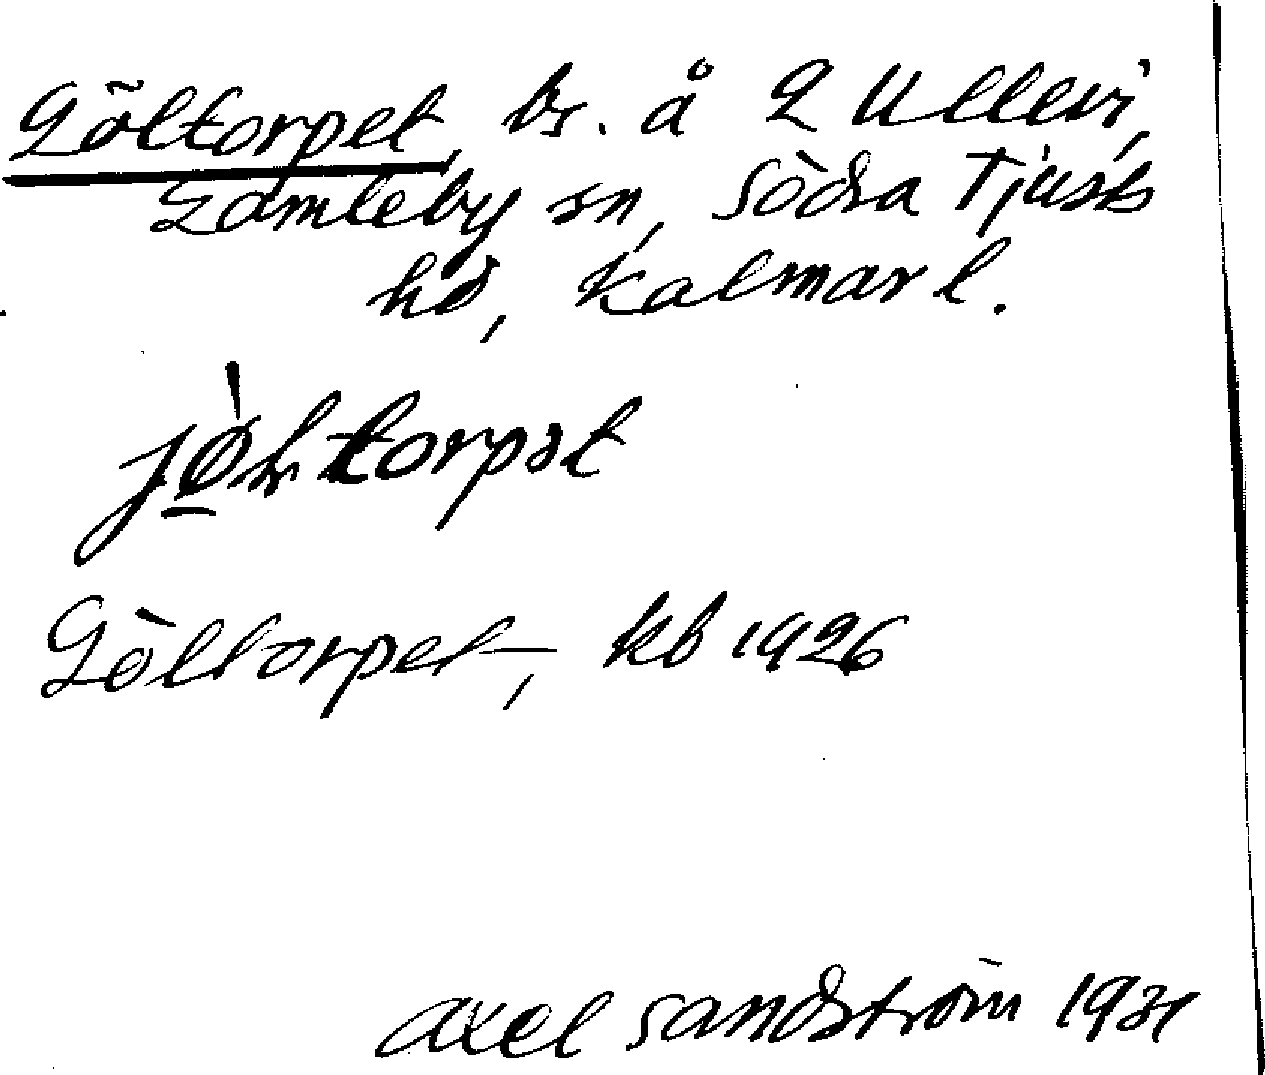 Göltorpet, ls. å L Ullevi,
Gamleby sn, Södra Tjusts
hd, Kalmar l.
Göltorpet, kb 1926
Axel Sandström 1931